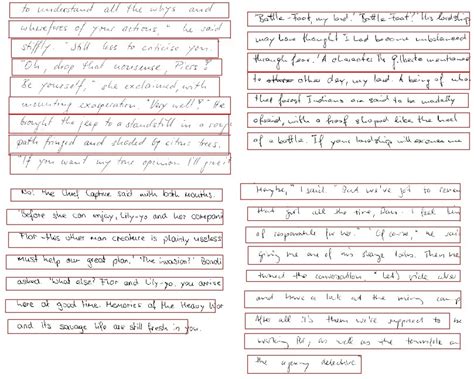 to understand all the whys and
wherefores of your actions," he said
stiffly. "Still less to criticise you."
"Oh, drop that nonsense, Piers!
Be yourself," she exclaimed, with
mounting exasperation. "Very well!" He
bought the jeep to a standstill in a rough
path fringed and shaded by citrus trees.
"If you want my true opinion I'll give it
'Battle-Foot, my lord.' 'Battle-Foot?' His lordship
may have thought I had become unbalanced
through fear. 'A character the Gilberts mentioned
to other day, my lord. A being of whom
the forest Indians are said to be mortally
afraid, with a hoof shaped like the heel
of a bottle. If your lordship will excuse me
No! the Chief Captive said with both mouths.
'Before she can enjoy, Lily-yo and her companion
Flor - this other man creature is plainly useless
must help our great plan.' 'The invasion?' Bandi
asked 'What else? Flor and Lily-yo, you arrive
here at good time. Memories of the Heavy World
and its savage life are still fresh in you.
Maybe," I said. "But we've got so
that just all the time, Dan. I feel kind
of responsible for her." "Of course," he said
giving me one of his savage looks. Then he
turned the conversation. "Let's ride over
and have a look at the mining camp
After all it's them we're supposed to be
working for, as well as the township
the agency detective.